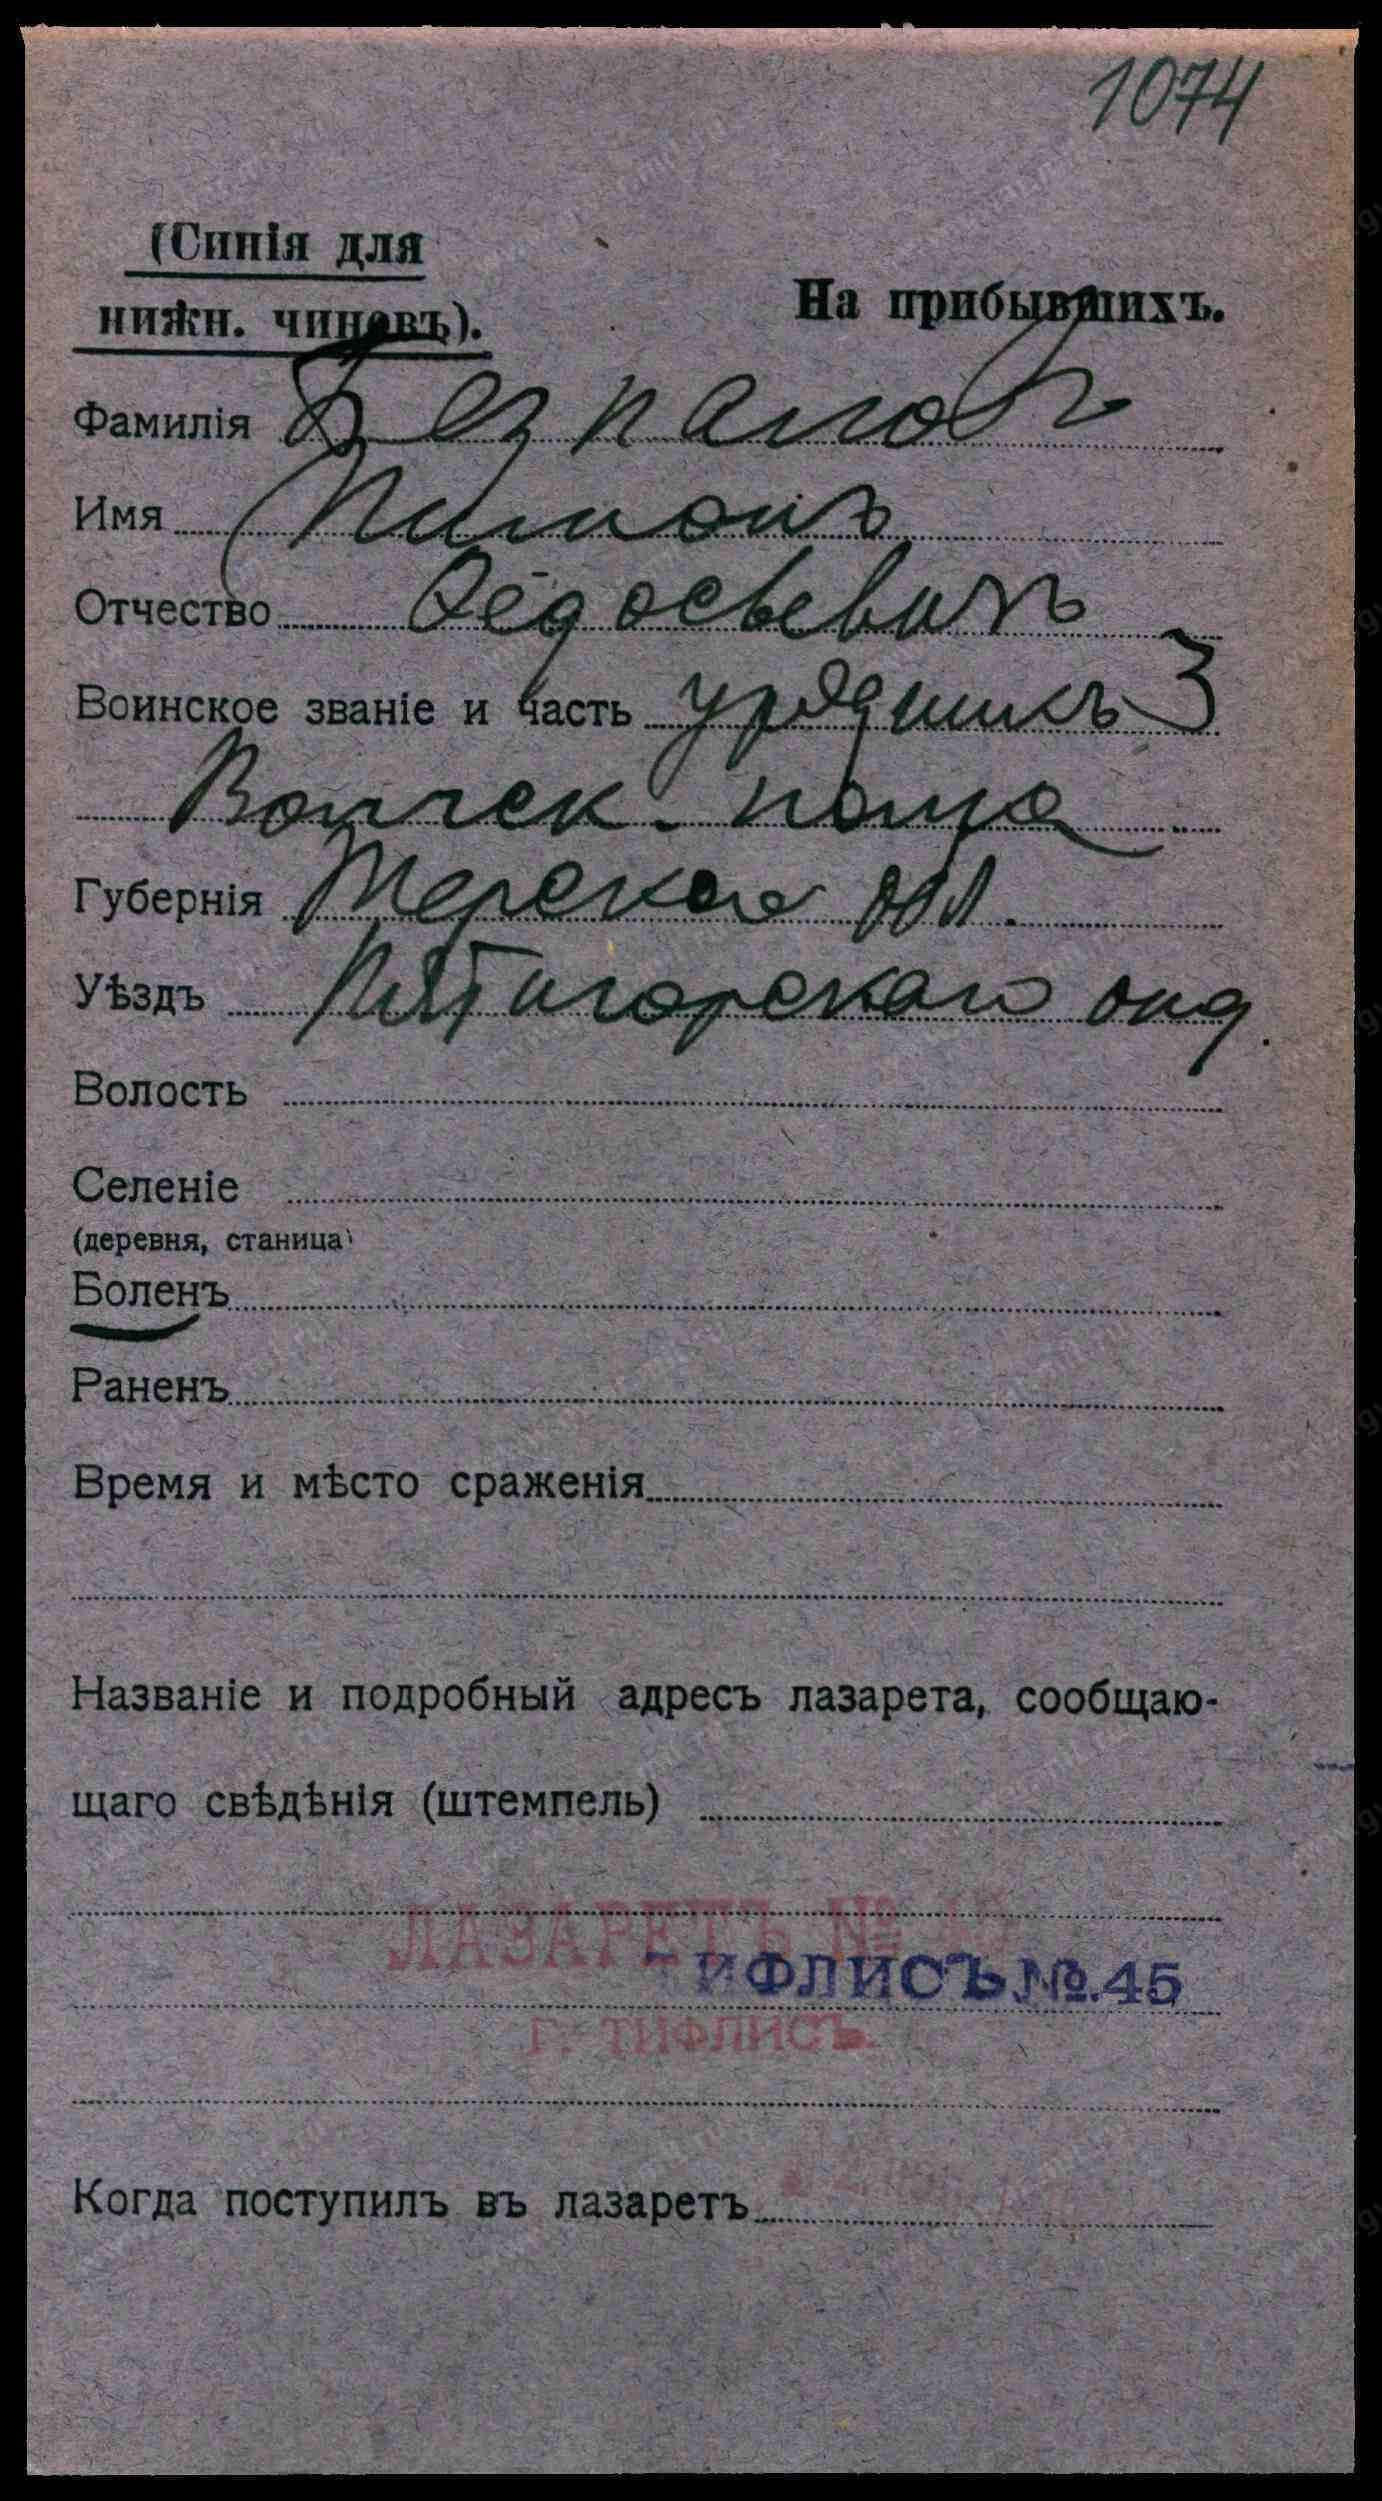 1074
(Синія для
нижн. чиновъ).
На прибывшихъ.
Фамилія Безпаловъ
Имя
Отчество Ѳедосѣевичъ
Воинское званіе и часть урядникъ 3
полка
Губернія Терской обл.
Уѣздъ Пятигорскаго
Волость
Селеніе
(деревня, станица)
Боленъ
Раненъ
Время и мѣсто сраженія
Названіе и подробный адресъ лазарета, сообщаю-
щаго свѣдѣнія (штемпель)
ЛАЗАРЕТЪ №
ИФЛИСЪ №.45
Г. ТИФЛИСЪ.
Когда поступилъ въ лазаретъ